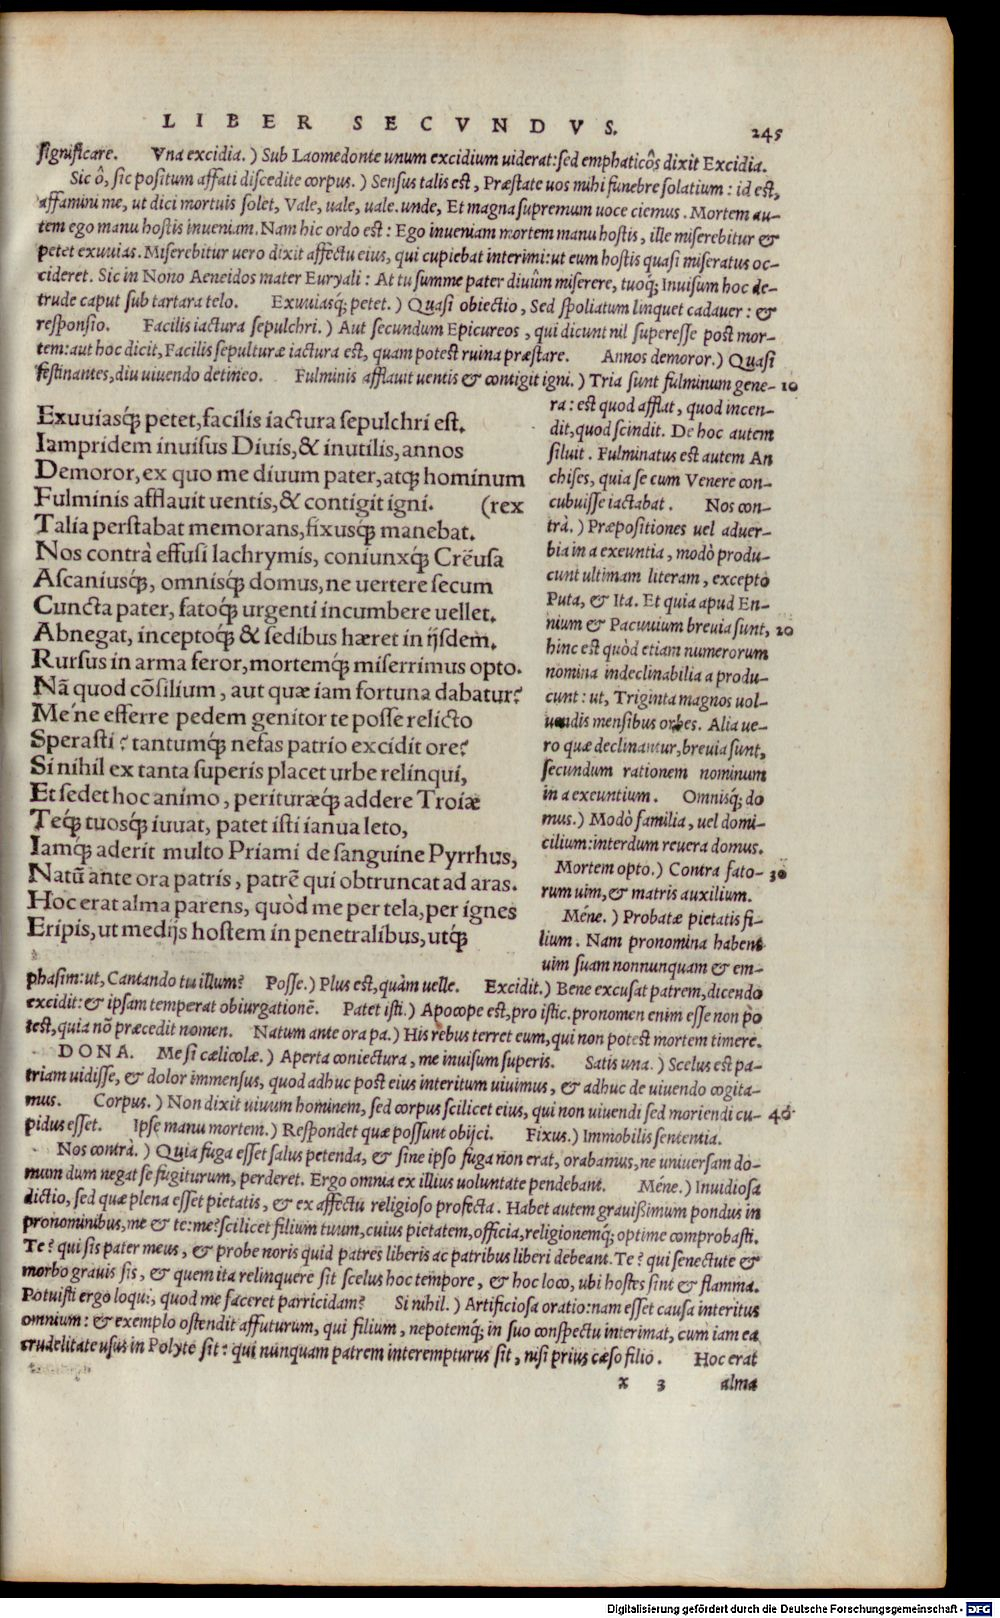 LIBER SECVNDVS. 245
significare. Vna excidia.) Sub Laomedonte unum excidium uiderat: sed emphaticω̃s dixit Excidia.
Sic ô, sic positum affati discedite corpus.) Sensus talis est, Præstate uos mihi funebre solatium: id est,
affamini me, ut dici mortuis solet, Vale, uale, uale. unde, Et magna supremum uoce ciemus. Mortem au-
tem ego manu hostis inueniam. Nam hic ordo est: Ego inueniam mortem manu hostis, ille miserebitur &
petet exuuias. Miserebitur uero dixit affectu eius, qui cupiebat interimi: ut eum hostis quasi miseratus oc-
cideret. Sic in Nono Aeneidos mater Euryali: At tu summe pater diuûm miserere, tuoq; Inuisum hoc de-
trude caput sub tartara telo. Exuuiasq; petet.) Quasi obiectio, Sed spoliatum linquet cadauer: &
responsio. Facilis iactura sepulchri.) Aut secundum Epicureos, qui dicunt nil superesse post mor-
tem: aut hoc dicit, Facilis sepulturæ iactura est, quam potest ruina præstare. Annos demoror.) Quasi
festinantes, diu uiuendo detineo. Fulminis afflauit uentis & contigit igni.) Tria sunt fulminum gene- 10
Exuuiasq́; petet, facilis iactura sepulchri est.
Iampridem inuisus Diuis, & inutilis, annos
Demoror, ex quo me diuum pater, atq; hominum
Fulminis afflauit uentis, & contigit igni. (rex
Talia perstabat memorans, fixusq́; manebat.
Nos contrà effusi lachrymis, coniunxq́; Crẽusa
Ascaniusq́;, omnisq́; domus, ne uertere secum
Cuncta pater, fatoq́; urgenti incumbere uellet.
Abnegat, inceptoq́; & sedibus hæret in ijsdem.
Rursus in arma feror, mortemq́; miserrimus opto.
Nã quod cõsilium, aut quæ iam fortuna dabatur?
Me'ne efferre pedem genitor te posse relicto
Sperasti? tantumq́; nefas patrio excidit ore?
Si nihil ex tanta superis placet urbe relinqui,
Et sedet hoc animo, perituræq́; addere Troiæ
Teq́; tuosq́; iuuat, patet isti ianua leto,
Iamq́; aderit multo Priami de sanguine Pyrrhus,
Natũ ante ora patris, patrẽ qui obtruncat ad aras.
Hoc erat alma parens, quòd me per tela, per ignes
Eripis, ut medijs hostem in penetralibus, utq́;
ra: est quod afflat, quod incen-
dit, quod scindit. De hoc autem
siluit. Fulminatus est autem An
chises, quia se cum Venere con-
cubuisse iactabat. Nos con-
trà.) Præpositiones uel aduer-
bia in a exeuntia, modò produ-
cunt ultimam literam, excepto
Puta, & Ita. Et quia apud En-
nium & Pacuuium breuia sunt, 20
hinc est quòd etiam numerorum
nomina indeclinabilia a produ-
cunt: ut, Triginta magnos uol-
uendis mensibus orbes. Alia ue-
ro quæ declinantur, breuia sunt,
secundum rationem nominum
in a exeuntium. Omnisq́; do
mus.) Modò familia, uel domi-
cilium: interdum reuera domus.
Mortem opto.) Contra fato- 30
rum uim, & matris auxilium.
Méne.) Probatæ pietatis fi-
lium. Nam pronomina habent
uim suam nonnunquam & em-
phasim: ut, Cantando tu illum? Posse.) Plus est, quàm uelle. Excidit.) Bene excusat patrem, dicendo
excidit: & ipsam temperat obiurgationẽ. Patet isti.) Apocope est, pro istic. pronomen enim esse non po
test, quia nõ præcedit nomen. Natum ante ora pa.) His rebus terret eum, qui non potest mortem timere.
DONA. Me si cælicolæ.) Aperta coniectura, me inuisum superis. Satis una.) Scelus est pa-
triam uidisse, & dolor immensus, quod adhuc post eius interitum uiuimus, & adhuc de uiuendo cogita-
mus. Corpus.) Non dixit uiuum hominem, sed corpus scilicet eius, qui non uiuendi sed moriendi cu- 40
pidus esset. Ipse manu mortem.) Respondet quæ possunt obijci. Fixus.) Immobilis sententia.
Nos contrà.) Quia fuga esset salus petenda, & sine ipso fuga non erat, orabamus, ne uniuersam do-
mum dum negat se fugiturum, perderet. Ergo omnia ex illius uoluntate pendebant. Méne.) Inuidiosa
dictio, sed quæ plena esset pietatis, & ex affectu religioso profecta. Habet autem grauißimum pondus in
pronominibus, me & te: me? scilicet filium tuum, cuius pietatem, officia, religionemq́; optime comprobasti.
Te? qui sis pater meus, & probe noris quid patres liberis ac patribus liberi debeant. Te? qui senectute &
morbo grauis sis, & quem ita relinquere sit scelus hoc tempore, & hoc loco, ubi hostes sint & flamma.
Potuisti ergo loqui, quod me faceret parricidam? Si nihil.) Artificiosa oratio: nam esset causa interitus
omnium: & exemplo ostendit affuturum, qui filium, nepotemq́; in suo conspectu interimat, cum iam ea
crudelitate usus in Polyte sit: qui nunquam patrem interempturus sit, nisi prius cæso filio. Hoc erat
x 3 alma
Digitalisierung gefördert durch die Deutsche Forschungsgemeinschaft - DFG